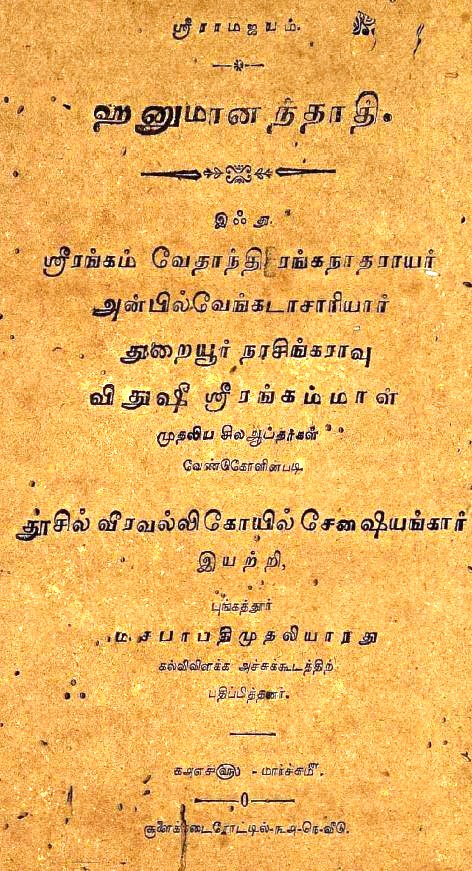 ஸ்ரீராமஜயம்.
ஹனுமானந்தாதி.
இஃது
ஸ்ரீரங்கம் வேதாந்தி ரங்கநாதராயர்
அன்பில்வேங்கடாசாரியார்
துறையூர் நரசிங்கராவு
விதுஷீ ஸ்ரீரங்கம்மாள்
முதலிய சிலஆப்தர்கள்
வேண்கோளின்படி
தூசில் வீரவல்லிகோயில் சேஷையங்கார்
இயற்றி,
புங்கத்தூர்
ம. சபாபதிமுதலியாரது
கல்விவிளக்க அச்சுக்கூடத்திற்
பதிப்பித்தனர்.
மார்ச்சுமீ.